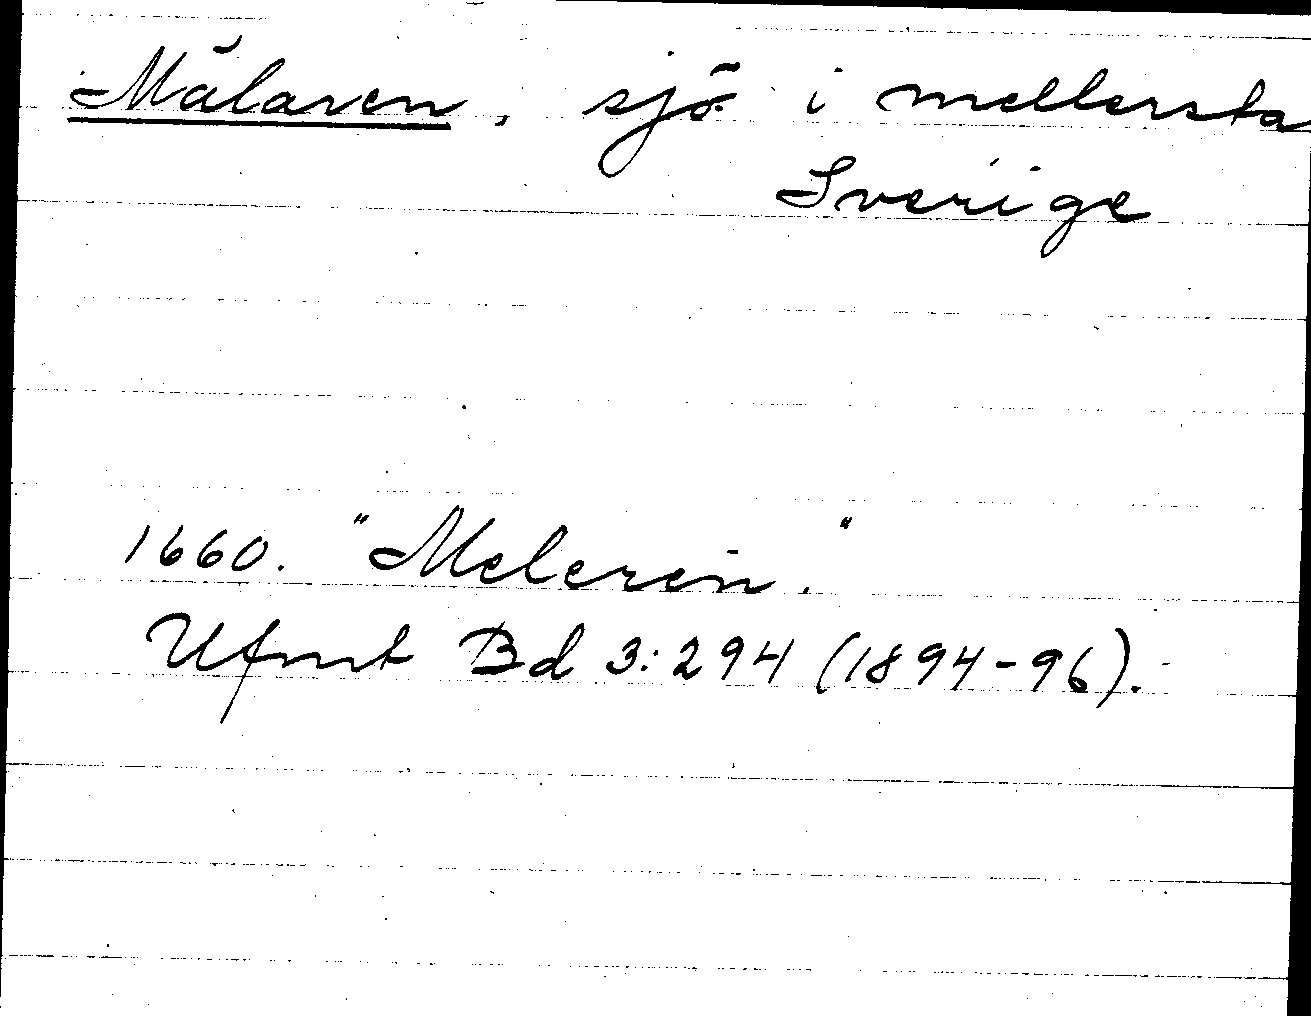 Mälaren, sjö i mellersta
Sverige
1660. "Meleren."
Ufmt Bd 3:294 (1894-96).